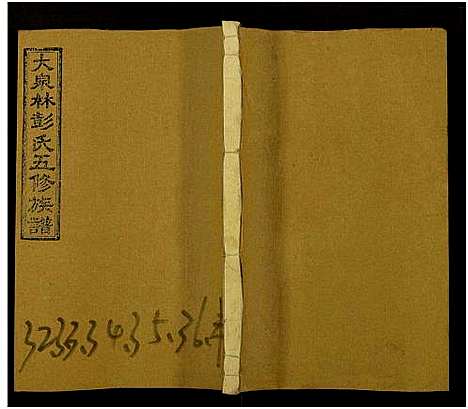 大泉林彭氏五修族譜
32.33.34.35.36卷